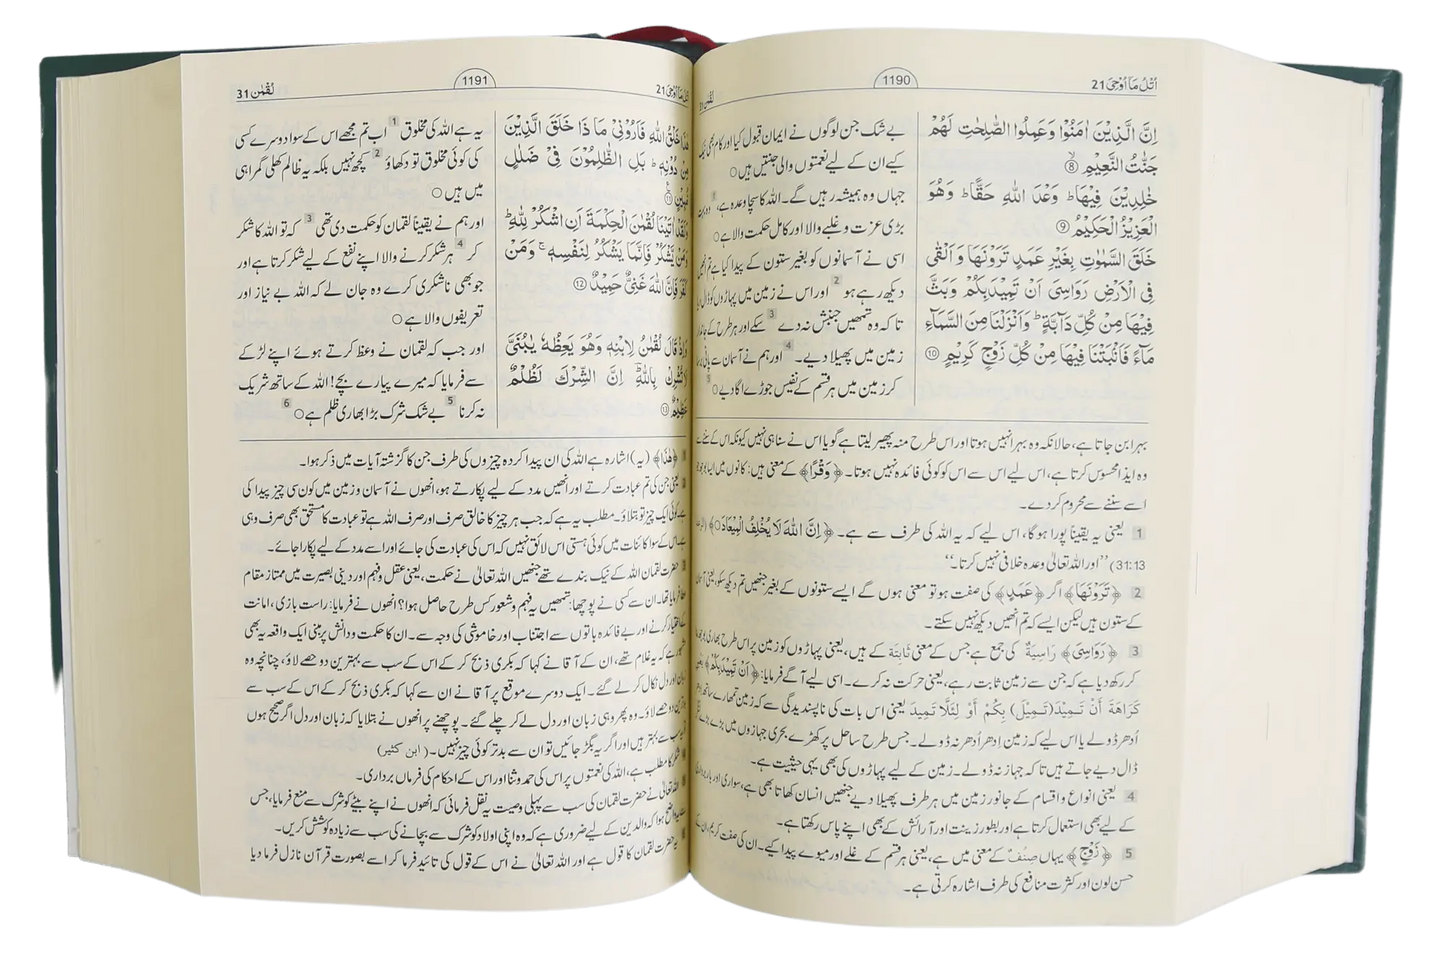 اُتْلُ مَآ اُوْحِىَ 21
1190
لُقْمٰن 31
اِنَّ الَّذِيْنَ اٰمَنُوْا وَعَمِلُوا الصّٰلِحٰتِ لَهُمْ
جَنّٰتُ النَّعِيْمِ ۙ⑧
خٰلِدِيْنَ فِيْهَا ؕ وَعْدَ اللّٰهِ حَقًّا ؕ وَهُوَ
الْعَزِيْزُ الْحَكِيْمُ ⑨
خَلَقَ السَّمٰوٰتِ بِغَيْرِ عَمَدٍ تَرَوْنَهَا وَاَلْقٰى
فِى الْاَرْضِ رَوَاسِىَ اَنْ تَمِيْدَ بِكُمْ وَبَثَّ
فِيْهَا مِنْ كُلِّ دَآبَّةٍ ؕ وَاَنْزَلْنَا مِنَ السَّمَآءِ
مَآءً فَاَنْۢبَتْنَا فِيْهَا مِنْ كُلِّ زَوْجٍ كَرِيْمٍ ⑩
بے شک جن لوگوں نے ایمان قبول کیا اور کام بھی نیک
کیے ان کے لیے نعمتوں والی جنتیں ہیں ○
جہاں وہ ہمیشہ رہیں گے۔ اللہ کا سچا وعدہ ہے، 1 وہ بہت
بڑی عزت و غلبے والا اور کامل حکمت والا ہے ○
اسی نے آسمانوں کو بغیر ستون کے پیدا کیا ہے تم انھیں
دیکھ رہے ہو 2 اور اس نے زمین میں پہاڑوں کو ڈال دیا
تا کہ وہ تمھیں جنبش نہ دے 3 سکے اور ہر طرح کے جاندار
زمین میں پھیلا دیے۔ 4 اور ہم نے آسمان سے پانی برسا
کر زمین میں ہر قسم کے نفیس جوڑے اگا دیے ○ 5
بہرا بن جاتا ہے، حالانکہ وہ بہرا نہیں ہوتا اور اس طرح منہ پھیر لیتا ہے گویا اس نے سنا ہی نہیں کیونکہ اس کے سننے سے
وہ ایذا محسوس کرتا ہے، اس لیے اس سے اس کو کوئی فائدہ نہیں ہوتا۔ ﴿وَقْرًا﴾ کے معنی ہیں: کانوں میں ایسا بوجھ جو
اسے سننے سے محروم کر دے۔
1 یعنی یہ یقیناً پورا ہوگا، اس لیے کہ یہ اللہ کی طرف سے ہے۔ ﴿اِنَّ اللّٰهَ لَا يُخْلِفُ الْمِيْعَادَ○﴾
31:13) ”اور اللہ تعالیٰ وعدہ خلافی نہیں کرتا۔“
2 ﴿تَرَوْنَهَا﴾ اگر ﴿عَمَدٍ﴾ کی صفت ہو تو معنی ہوں گے ایسے ستونوں کے بغیر جنھیں تم دیکھ سکو، یعنی آسمان
کے ستون ہیں لیکن ایسے کہ تم انھیں دیکھ نہیں سکتے۔
3 ﴿رَوَاسِىَ﴾ رَاسِيَةٌ کی جمع ہے جس کے معنی ثَابِتَة کے ہیں، یعنی پہاڑوں کو زمین پر اس طرح بھاری بوجھ بنا
کر رکھ دیا ہے کہ جن سے زمین ثابت رہے، یعنی حرکت نہ کرے۔ اسی لیے آگے فرمایا: ﴿اَنْ تَمِيْدَ بِكُمْ﴾ یعنی
كَرَاهَةَ أَنْ تَمِيْدَ (تَمِيْلَ) بِكُمْ أَوْ لِئَلَّا تَمِيْدَ یعنی اس بات کی ناپسندیدگی سے کہ زمین تمھارے ساتھ ادھر
اُدھر ڈولے یا اس لیے کہ زمین اِدھر اُدھر نہ ڈولے۔ جس طرح ساحل پر کھڑے بحری جہازوں میں بڑے بڑے لنگر
ڈال دیے جاتے ہیں تا کہ جہاز نہ ڈولے۔ زمین کے لیے پہاڑوں کی بھی یہی حیثیت ہے۔
4 یعنی انواع و اقسام کے جانور زمین میں ہر طرف پھیلا دیے جنھیں انسان کھاتا بھی ہے، سواری اور بار برداری
کے لیے بھی استعمال کرتا ہے اور بطور زینت اور آرائش کے بھی اپنے پاس رکھتا ہے۔
5 ﴿زَوْجٍ﴾ یہاں صِنْفٌ کے معنی میں ہے، یعنی ہر قسم کے غلے اور میوے پیدا کیے۔ ان کی صفت کریم، ان کے
حسن لون اور کثرت منافع کی طرف اشارہ کرتی ہے۔
اُتْلُ مَآ اُوْحِىَ 21
1191
لُقْمٰن 31
هٰذَا خَلْقُ اللّٰهِ فَاَرُوْنِىْ مَا ذَا خَلَقَ الَّذِيْنَ
مِنْ دُوْنِهٖ ؕ بَلِ الظّٰلِمُوْنَ فِىْ ضَلٰلٍ
مُّبِيْنٍ ⑪
وَلَقَدْ اٰتَيْنَا لُقْمٰنَ الْحِكْمَةَ اَنِ اشْكُرْ لِلّٰهِ ؕ
وَمَنْ يَّشْكُرْ فَاِنَّمَا يَشْكُرُ لِنَفْسِهٖ ۚ وَمَنْ
كَفَرَ فَاِنَّ اللّٰهَ غَنِىٌّ حَمِيْدٌ ⑫
وَاِذْ قَالَ لُقْمٰنُ لِابْنِهٖ وَهُوَ يَعِظُهٗ يٰبُنَىَّ
لَا تُشْرِكْ بِاللّٰهِ ؔؕ اِنَّ الشِّرْكَ لَظُلْمٌ
عَظِيْمٌ ⑬
یہ ہے اللہ کی مخلوق 1 اب تم مجھے اس کے سوا دوسرے کسی
کی کوئی مخلوق تو دکھاؤ 2 کچھ نہیں بلکہ یہ ظالم کھلی گمراہی
میں ہیں ○
اور ہم نے یقیناً لقمان کو حکمت دی تھی 3 کہ تو اللہ کا شکر
کر 4 ہر شکر کرنے والا اپنے نفع کے لیے شکر کرتا ہے اور
جو بھی ناشکری کرے وہ جان لے کہ اللہ بے نیاز اور
تعریفوں والا ہے ○
اور جب کہ لقمان نے وعظ کرتے ہوئے اپنے لڑکے
سے فرمایا کہ میرے پیارے بچے! اللہ کے ساتھ شریک
نہ کرنا 5 بے شک شرک بڑا بھاری ظلم ہے ○ 6
﴿هٰذَا﴾ (یہ) اشارہ ہے اللہ کی ان پیدا کردہ چیزوں کی طرف جن کا گزشتہ آیات میں ذکر ہوا۔
یعنی جن کی تم عبادت کرتے اور انھیں مدد کے لیے پکارتے ہو، انھوں نے آسمان و زمین میں کون سی چیز پیدا کی
ہے کوئی ایک چیز تو بتلاؤ۔ مطلب یہ ہے کہ جب ہر چیز کا خالق صرف اور صرف اللہ ہے تو عبادت کا مستحق بھی صرف وہی
ہے۔ اس کے سوا کائنات میں کوئی ہستی اس لائق نہیں کہ اس کی عبادت کی جائے اور اسے مدد کے لیے پکارا جائے۔
حضرت لقمان اللہ کے نیک بندے تھے جنھیں اللہ تعالیٰ نے حکمت، یعنی عقل و فہم اور دینی بصیرت میں ممتاز مقام
عطا فرمایا تھا۔ ان سے کسی نے پوچھا: تمھیں یہ فہم و شعور کس طرح حاصل ہوا؟ انھوں نے فرمایا: راست بازی، امانت
کے اختیار کرنے اور بے فائدہ باتوں سے اجتناب اور خاموشی کی وجہ سے۔ ان کا حکمت و دانش پر مبنی ایک واقعہ یہ بھی
مشہور ہے کہ یہ غلام تھے، ان کے آقا نے کہا کہ بکری ذبح کر کے اس کے سب سے بہترین دو حصے لاؤ، چنانچہ وہ
زبان اور دل نکال کر لے گئے۔ ایک دوسرے موقع پر آقا نے ان سے کہا کہ بکری ذبح کر کے اس کے سب سے
دو حصے لاؤ۔ وہ پھر وہی زبان اور دل لے کر چلے گئے۔ پوچھنے پر انھوں نے بتلایا کہ زبان اور دل اگر صحیح ہوں
سب سے بہتر ہیں اور اگر یہ بگڑ جائیں تو ان سے بدتر کوئی چیز نہیں۔ (ابن کثیر)
شکر کا مطلب ہے، اللہ کی نعمتوں پر اس کی حمد و ثنا اور اس کے احکام کی فرماں برداری۔
اللہ تعالیٰ نے حضرت لقمان کی سب سے پہلی وصیت یہ نقل فرمائی کہ انھوں نے اپنے بیٹے کو شرک سے منع فرمایا، جس
سے یہ واضح ہوا کہ والدین کے لیے ضروری ہے کہ وہ اپنی اولاد کو شرک سے بچانے کی سب سے زیادہ کوشش کریں۔
یہ حضرت لقمان کا قول ہے اور اللہ تعالیٰ نے اس کے قول کی تائید فرما کر اسے بصورت قرآن نازل فرما دیا